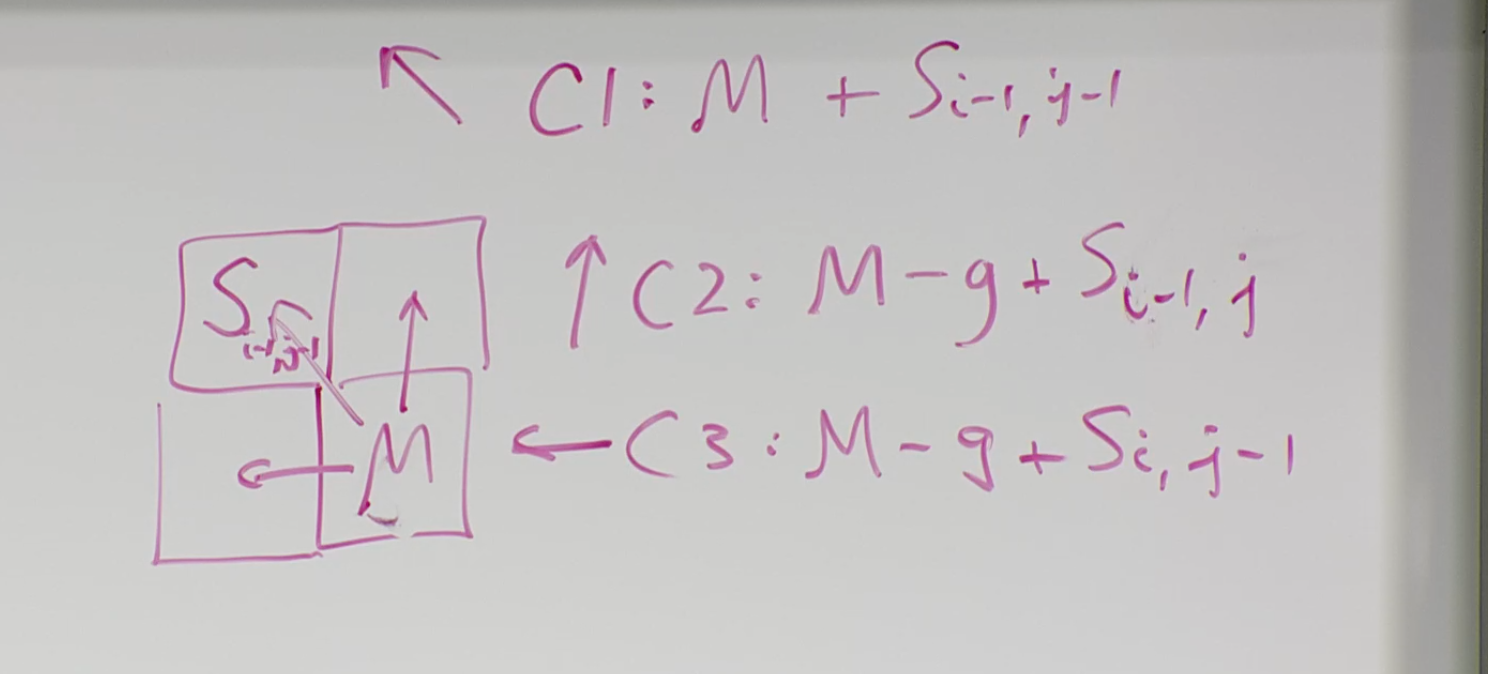 ↖ C1: M + Si-1, j-1
Si-1, j-1
↑ C2: M - g + Si-1, j
M
← C3: M - g + Si, j-1